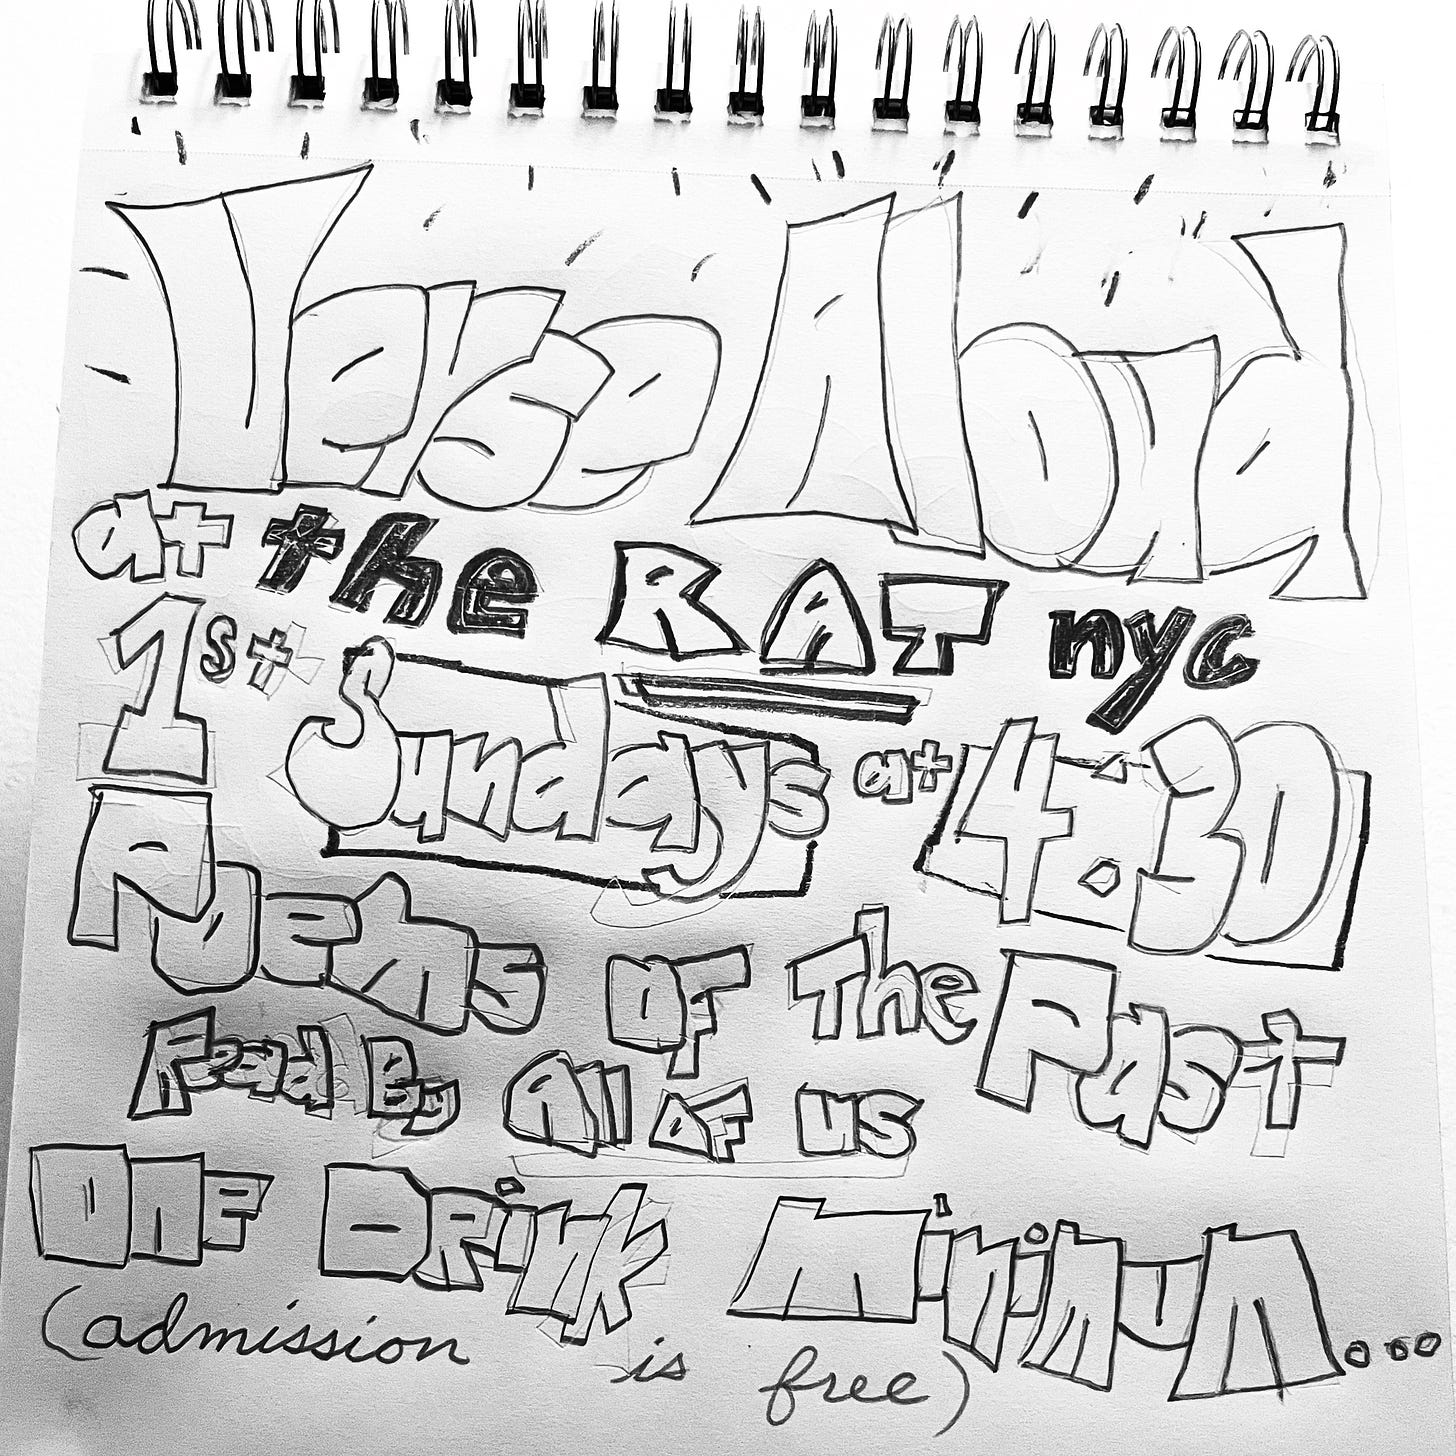 Verse Aloud
at the RAT nyc
1st Sundays at 4:30
Poems OF The Past
Read By All OF us
One Drink Minimum...
(admission is free)